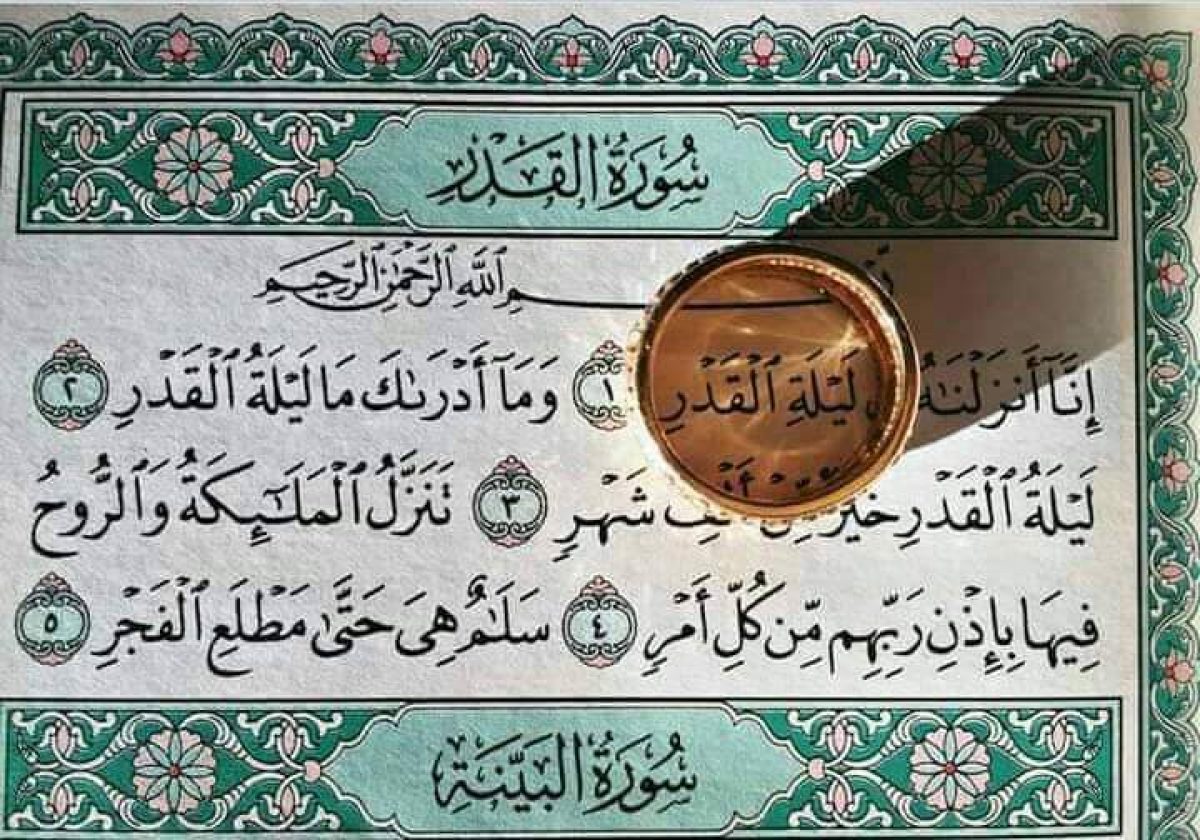 سُورَةُ القَدْرِ
ٱللَّهِ ٱلرَّحْمَٰنِ ٱلرَّحِيمِ
إِنَّآ أَنزَلْنَٰهُ لَيْلَةِ ٱلْقَدْرِ ١ وَمَآ أَدْرَىٰكَ مَا لَيْلَةُ ٱلْقَدْرِ ٢
لَيْلَةُ ٱلْقَدْرِ خَيْرٌ شَهْرٍ ٣ تَنَزَّلُ ٱلْمَلَٰٓئِكَةُ وَٱلرُّوحُ
فِيهَا بِإِذْنِ رَبِّهِم مِّن كُلِّ أَمْرٍ ٤ سَلَٰمٌ هِىَ حَتَّىٰ مَطْلَعِ ٱلْفَجْرِ ٥
سُورَةُ البَيِّنَةِ